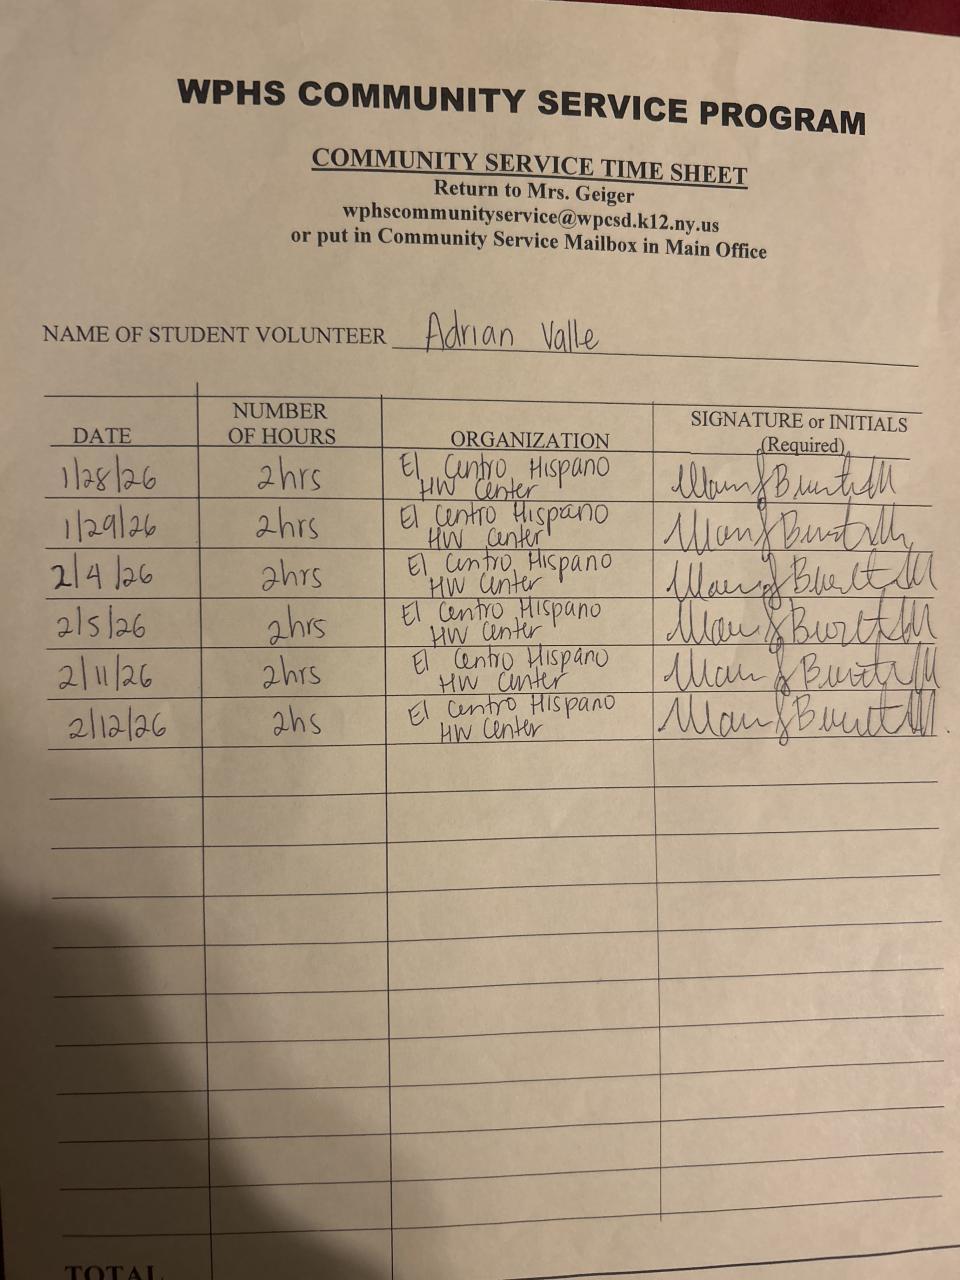 WPHS COMMUNITY SERVICE PROGRAM
COMMUNITY SERVICE TIME SHEET
Return to Mrs. Geiger
wphscommunityservice@wpcsd.k12.ny.us
or put in Community Service Mailbox in Main Office
NAME OF STUDENT VOLUNTEER Adrian Valle
DATE NUMBER OF HOURS ORGANIZATION SIGNATURE or INITIALS (Required)
1/28/26 2hrs El Centro Hispano HW Center
1/29/26 2hrs El Centro Hispano HW Center
2/4/26 2hrs El Centro Hispano HW Center
2/5/26 2hrs El Centro Hispano HW Center
2/11/26 2hrs El Centro Hispano HW Center
2/12/26 2hs El Centro Hispano HW Center
TOTAL